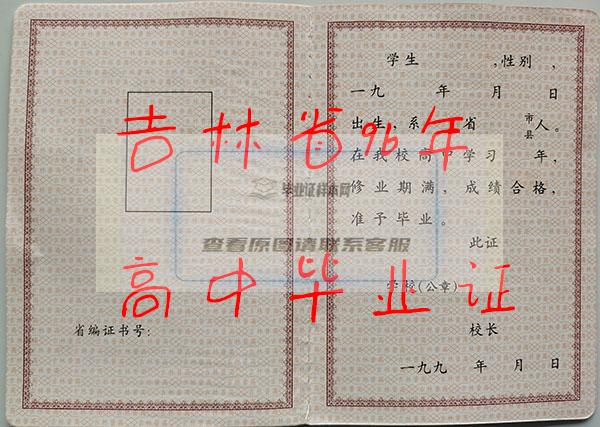 学生 ,性别 ,
一九 年 月 日
出生,系 省 市县人。
在我校高中学习 年,
修业期满,成绩合格,
准予毕业。
此证
学校(公章)
校长
一九九 年 月 日
省编证书号:
吉林省96年
高中毕业证
毕业证样本网
查看原图请联系客服